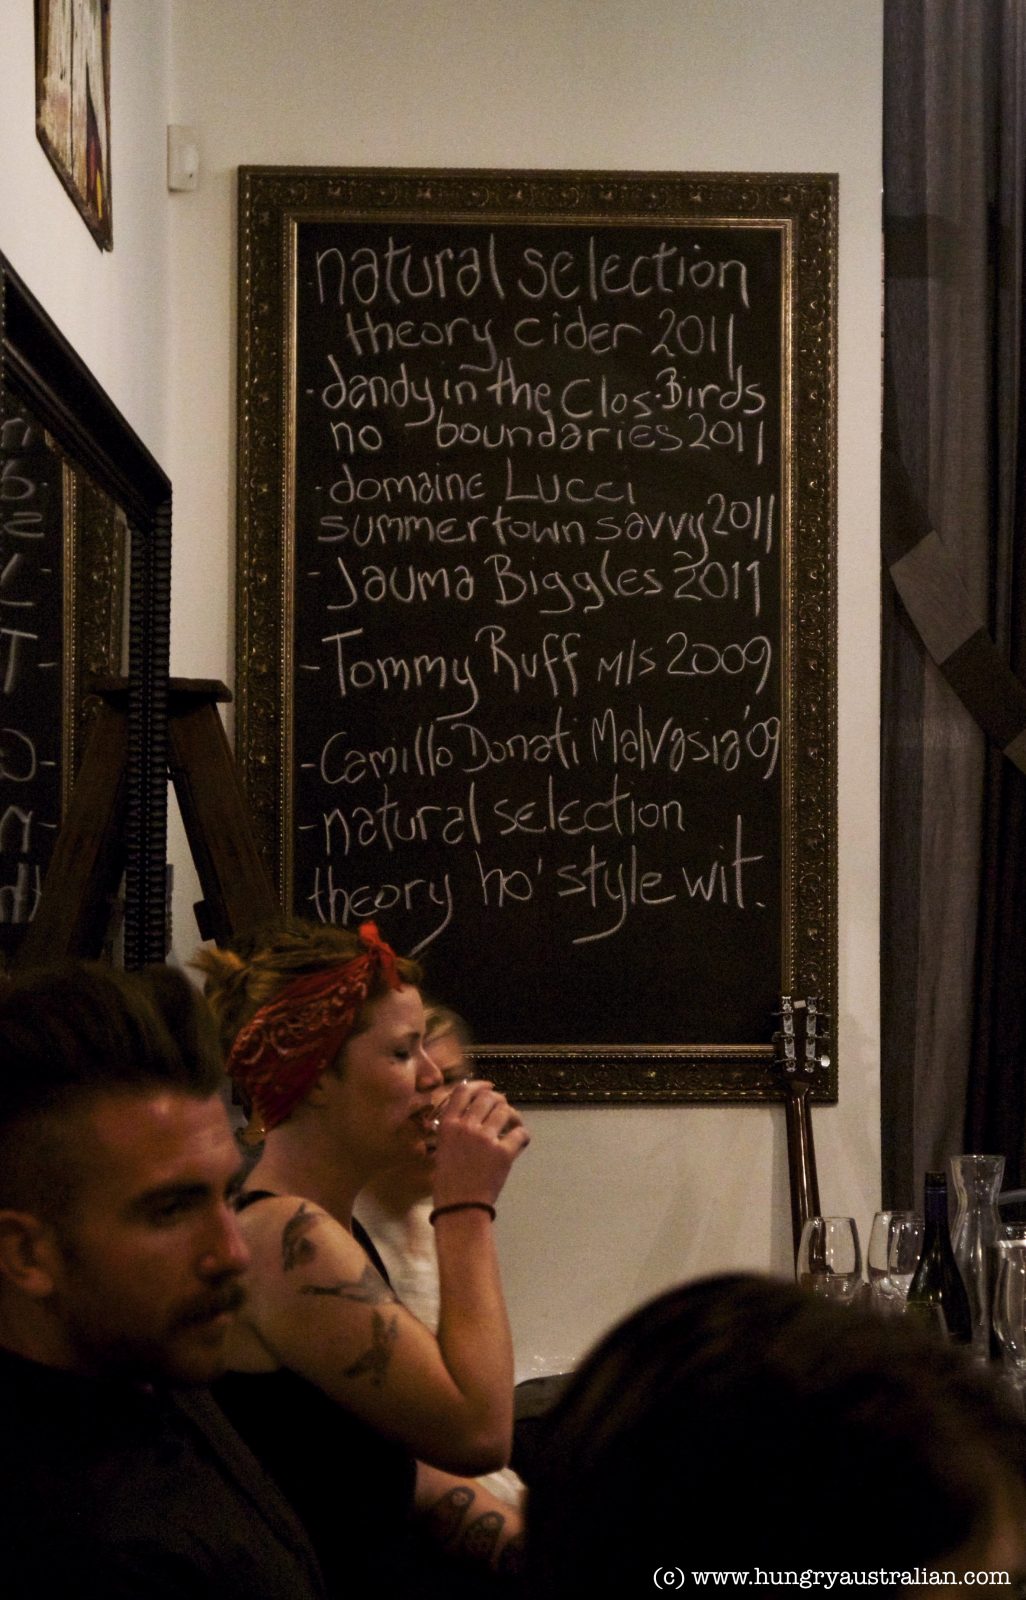 natural selection
theory cider 2011
- dandy in the Clos. Birds
no boundaries 2011
- domaine Lucci
summertown savvy 2011
- Jauma Biggles 2011
- Tommy Ruff M/S 2009
- Camillo Donati Malvasia '09
- natural selection
theory ho' style wit.
(c) www.hungryaustralian.com